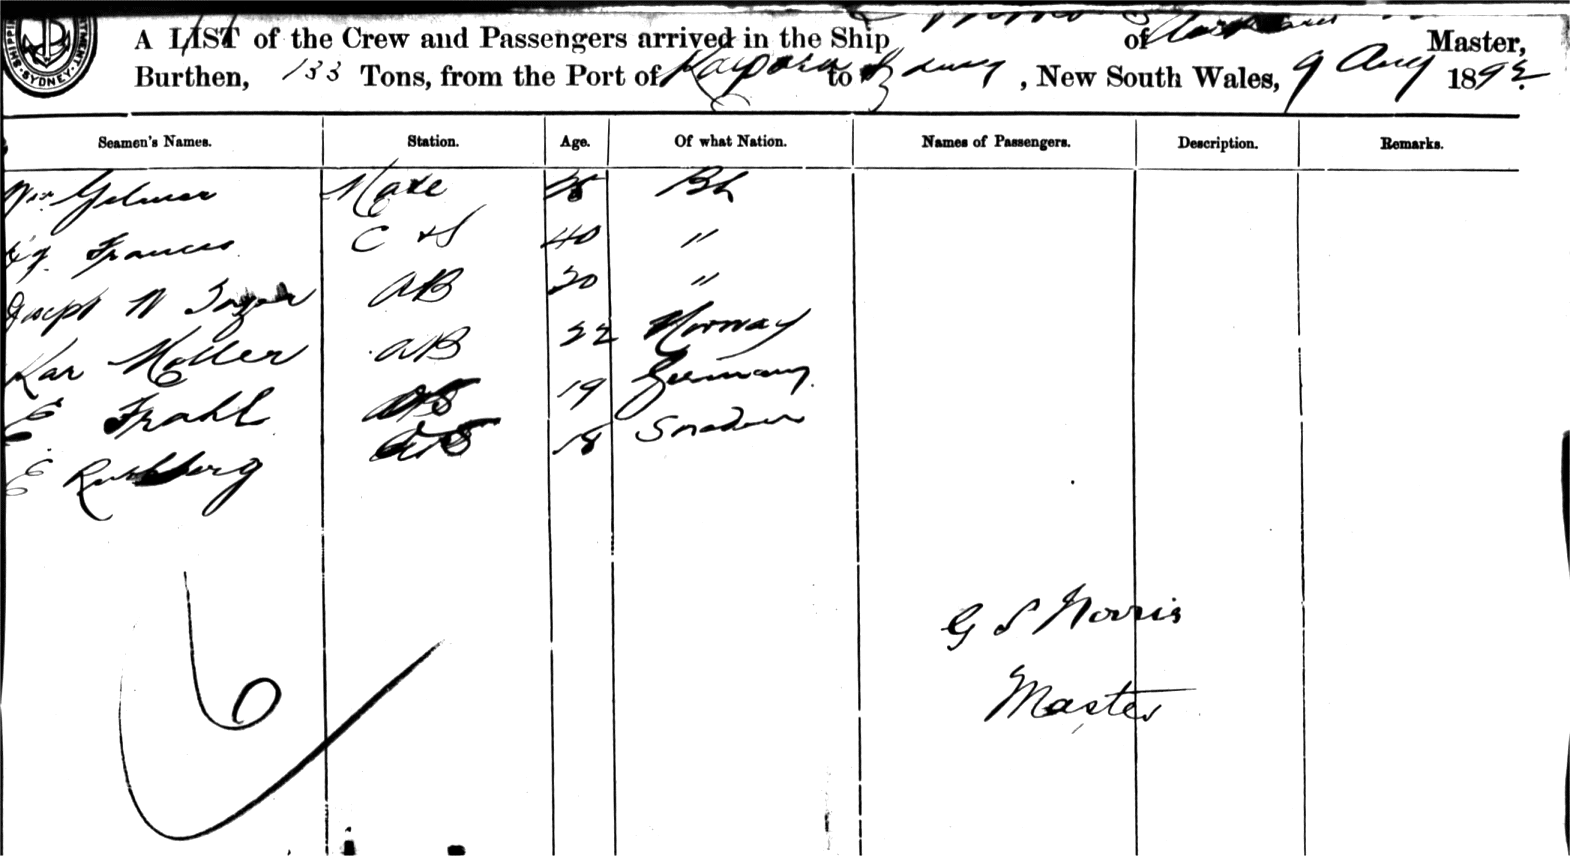 A LIST of the Crew and Passengers arrived in the Ship of Master,
Burthen, 133 Tons, from the Port of Kaipara to Sydney, New South Wales, 9 Aug 1892
SYDNEY
Seamen's Names. Station. Age. Of what Nation. Names of Passengers. Description. Remarks.
Wm Gilmer Mate Bh
Francis C & S 40 "
Joseph N AB 20 "
Kar Moller AB 22 Norway
E Frahl 19 Germany
E 18
6
G S Norris
Master